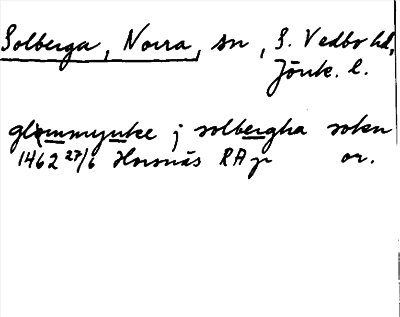 Solberga, Norra, sn, S. Vedbo hd,
Jönk. l.
glømmynke j solbergha sokn
1462 27/6 Hornnäs RAp or.